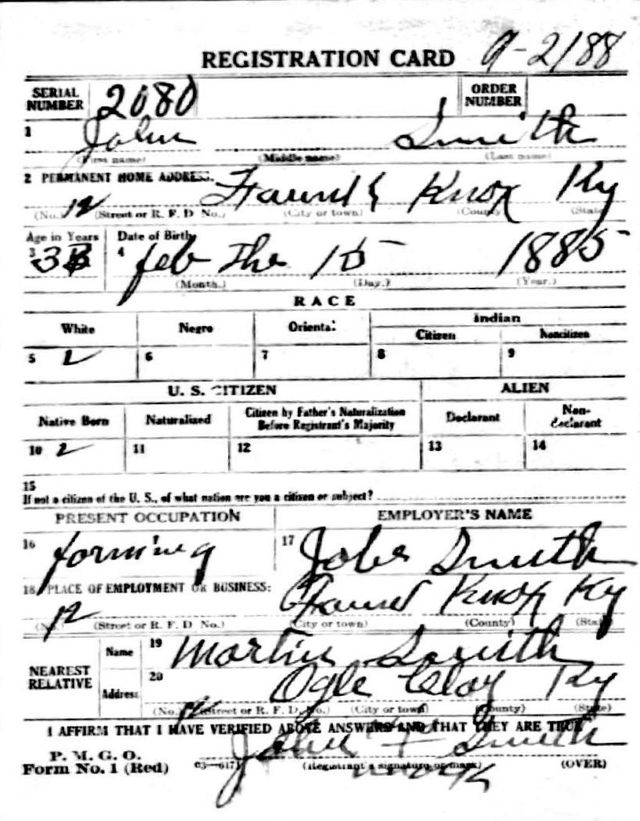 REGISTRATION CARD 9-2188
SERIAL NUMBER 2080 ORDER NUMBER
1 John Smith
(First name) (Middle name) (Last name)
2 PERMANENT HOME ADDRESS. Knox Ky
(No.) (Street or R. F. D No.) (City or town) (County) (State)
Age in Years Date of Birth
3 4 feb the 15 1885
(Month.) (Day.) (Year.)
RACE
White Negro Oriental Indian
Citizen Noncitizen
5 6 7 8 9
U. S. CITIZEN ALIEN
Native Born Naturalized Citizen by Father's Naturalization Before Registrant's Majority Declarant Non-declarant
10 11 12 13 14
15
If not a citizen of the U. S., of what nation are you a citizen or subject?
PRESENT OCCUPATION EMPLOYER'S NAME
16 forming 17 Smith
18 PLACE OF EMPLOYMENT OR BUSINESS: Knox Ky
(No.) (Street or R. F. D No.) (City or town) (County) (State)
NEAREST RELATIVE Name 19 Martin Smith
Address 20 Ogle Clay Ky
(No.) (Street or R. F. D. No.) (City or town) (County) (State)
I AFFIRM THAT I HAVE VERIFIED ABOVE ANSWERS AND THAT THEY ARE TRUE
P. M. G. O.
Form No. 1 (Red) 03—6171 John Smith
(Registrant's signature or mark) (OVER)
mark